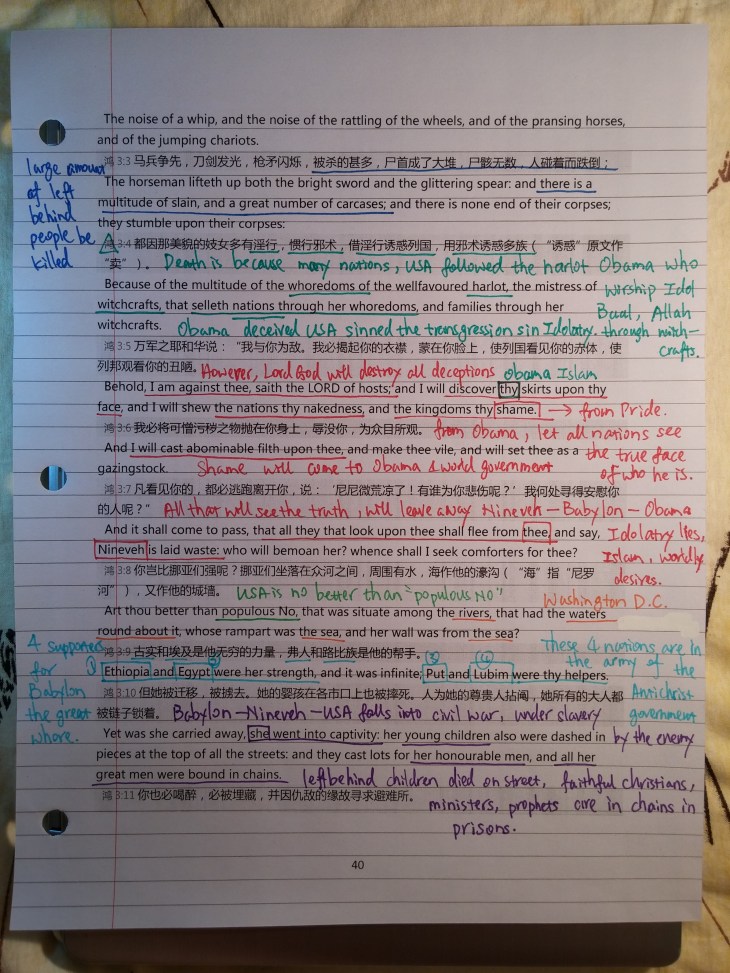 The noise of a whip, and the noise of the rattling of the wheels, and of the pransing horses,
and of the jumping chariots.
鸿 3:3 马兵争先，刀剑发光，枪矛闪烁，被杀的甚多，尸首成了大堆，尸骸无数，人碰着而跌倒；
large amount
of left
behind
people be
killed
The horseman lifteth up both the bright sword and the glittering spear: and there is a
multitude of slain, and a great number of carcases; and there is none end of their corpses;
they stumble upon their corpses:
鸿 3:4 都因那美貌的妓女多有淫行，惯行邪术，借淫行诱惑列国，用邪术诱惑多族（“诱惑”原文作
“卖”）。 Death is because many nations, USA followed the harlot Obama who
Because of the multitude of the whoredoms of the wellfavoured harlot, the mistress of worship Idol
witchcrafts, that selleth nations through her whoredoms, and families through her Baal, Allah
witchcrafts. Obama deceived USA sinned the transgression sin Idolatry. through witch-
crafts.
鸿 3:5 万军之耶和华说：“我与你为敌。我必揭起你的衣襟，蒙在你脸上，使列国看见你的赤体，使
列邦观看你的丑陋。 However, Lord God will destroy all deceptions Obama Islam
Behold, I am against thee, saith the LORD of hosts; and I will discover thy skirts upon thy
face, and I will shew the nations thy nakedness, and the kingdoms thy shame. → from Pride.
鸿 3:6 我必将可憎污秽之物抛在你身上，辱没你，为众目所观。 from Obama, let all nations see
And I will cast abominable filth upon thee, and make thee vile, and will set thee as a the true face
gazingstock. Shame will come to Obama & world government of who he is.
鸿 3:7 凡看见你的，都必逃跑离开你，说：‘尼尼微荒凉了！有谁为你悲伤呢？’我何处寻得安慰你
的人呢？” All that will see the truth, will leave away Nineveh-Babylon-Obama
And it shall come to pass, that all they that look upon thee shall flee from thee, and say, Idolatry lies,
Nineveh is laid waste: who will bemoan her? whence shall I seek comforters for thee? Islam, worldly
desires.
鸿 3:8 你岂比挪亚们强呢？挪亚们坐落在众河之间，周围有水，海作他的濠沟（“海”指“尼罗
河”），又作他的城墙。 USA is no better than "populous No" Washington D.C.
Art thou better than populous No, that was situate among the rivers, that had the waters
round about it, whose rampart was the sea, and her wall was from the sea?
鸿 3:9 古实和埃及是他无穷的力量，弗人和路比族是他的帮手。 ③ ④ These 4 nations are in
4 supported
for
Babylon
the great
whore.
① ② Ethiopia and Egypt were her strength, and it was infinite; Put and Lubim were thy helpers. the army of the
Antichrist
government
鸿 3:10 但她被迁移，被掳去。她的婴孩在各市口上也被摔死。人为她的尊贵人拈阄，她所有的大人都
被链子锁着。 Babylon-Nineveh-USA falls into civil war, under slavery
Yet was she carried away, she went into captivity: her young children also were dashed in by the enemy
pieces at the top of all the streets: and they cast lots for her honourable men, and all her
great men were bound in chains. leftbehind children died on street, faithful christians,
鸿 3:11 你也必喝醉，必被埋藏，并因仇敌的缘故寻求避难所。 ministers, prophets are in chains in
prisons.
40